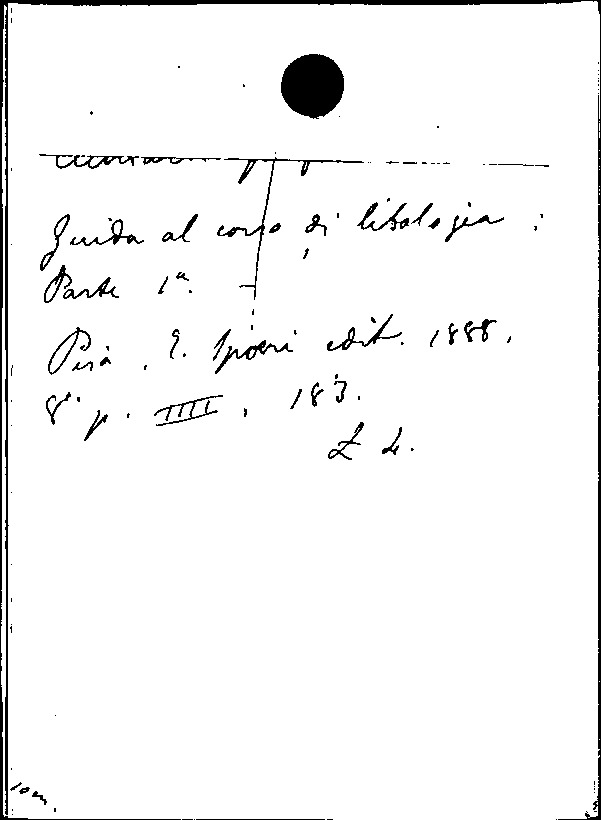 Guida al corso di litologia :
Parte 1ª. -
Pisa, E. Spoerri edit. 1888.
8° p. IIII, 183.
£ 4.